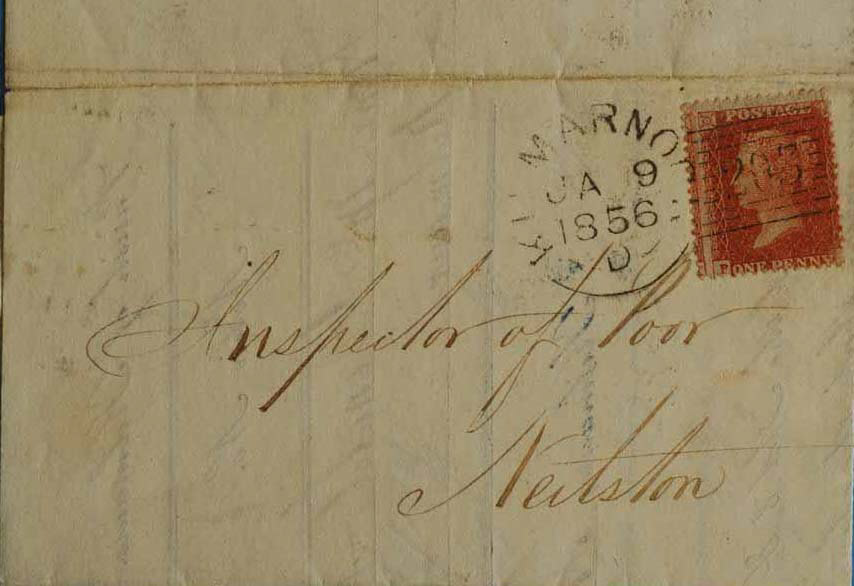 KILMARNOCK
JA 9
1856
D
POSTAGE
ONE PENNY
Inspector of Poor
Neilston